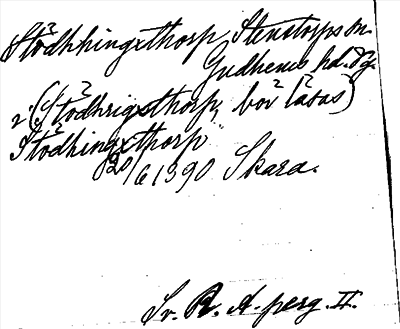 Stödhhingxthorp, Stenstorps sn.
Gudhems hd. Vg.
2 (Stödhrigxthorp, bör läsas)
Stödhingxthorp
20/6 1390 Skara.
Sv. R. A. perg. II.